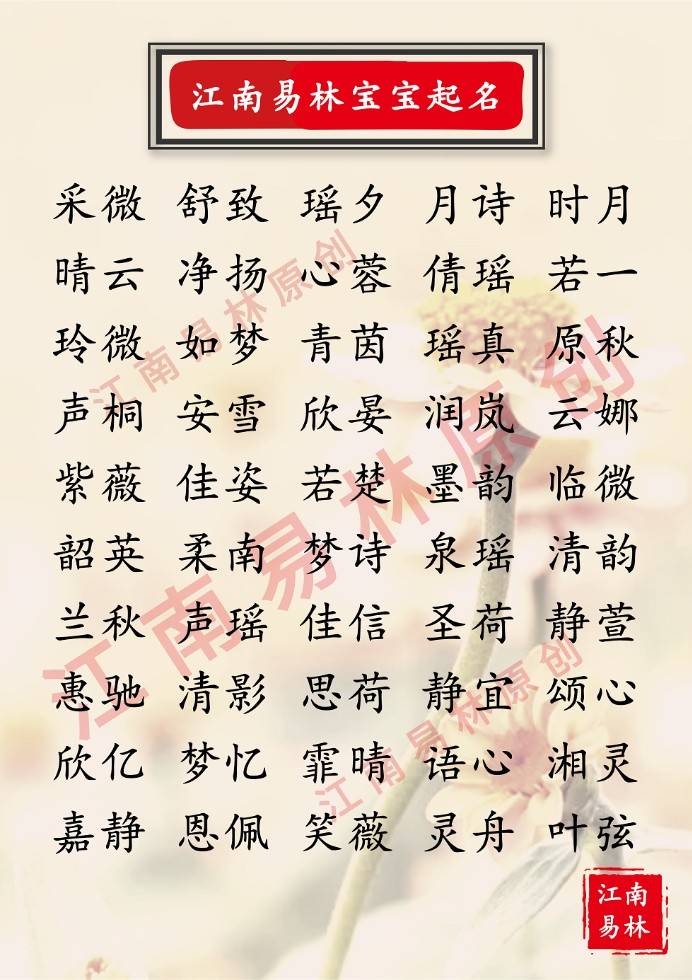 江南易林宝宝起名
采微 舒致 瑶夕 月诗 时月
晴云 净扬 心蓉 倩瑶 若一
玲微 如梦 青茵 瑶真 原秋
声桐 安雪 欣晏 润岚 云娜
紫薇 佳姿 若楚 墨韵 临微
韶英 柔南 梦诗 泉瑶 清韵
兰秋 声瑶 佳信 圣荷 静萱
惠驰 清影 思荷 静宜 颂心
欣亿 梦忆 霏晴 语心 湘灵
嘉静 恩佩 笑薇 灵舟 叶弦
江南易林原创
江南易林原创
江南易林原创
江南
易林